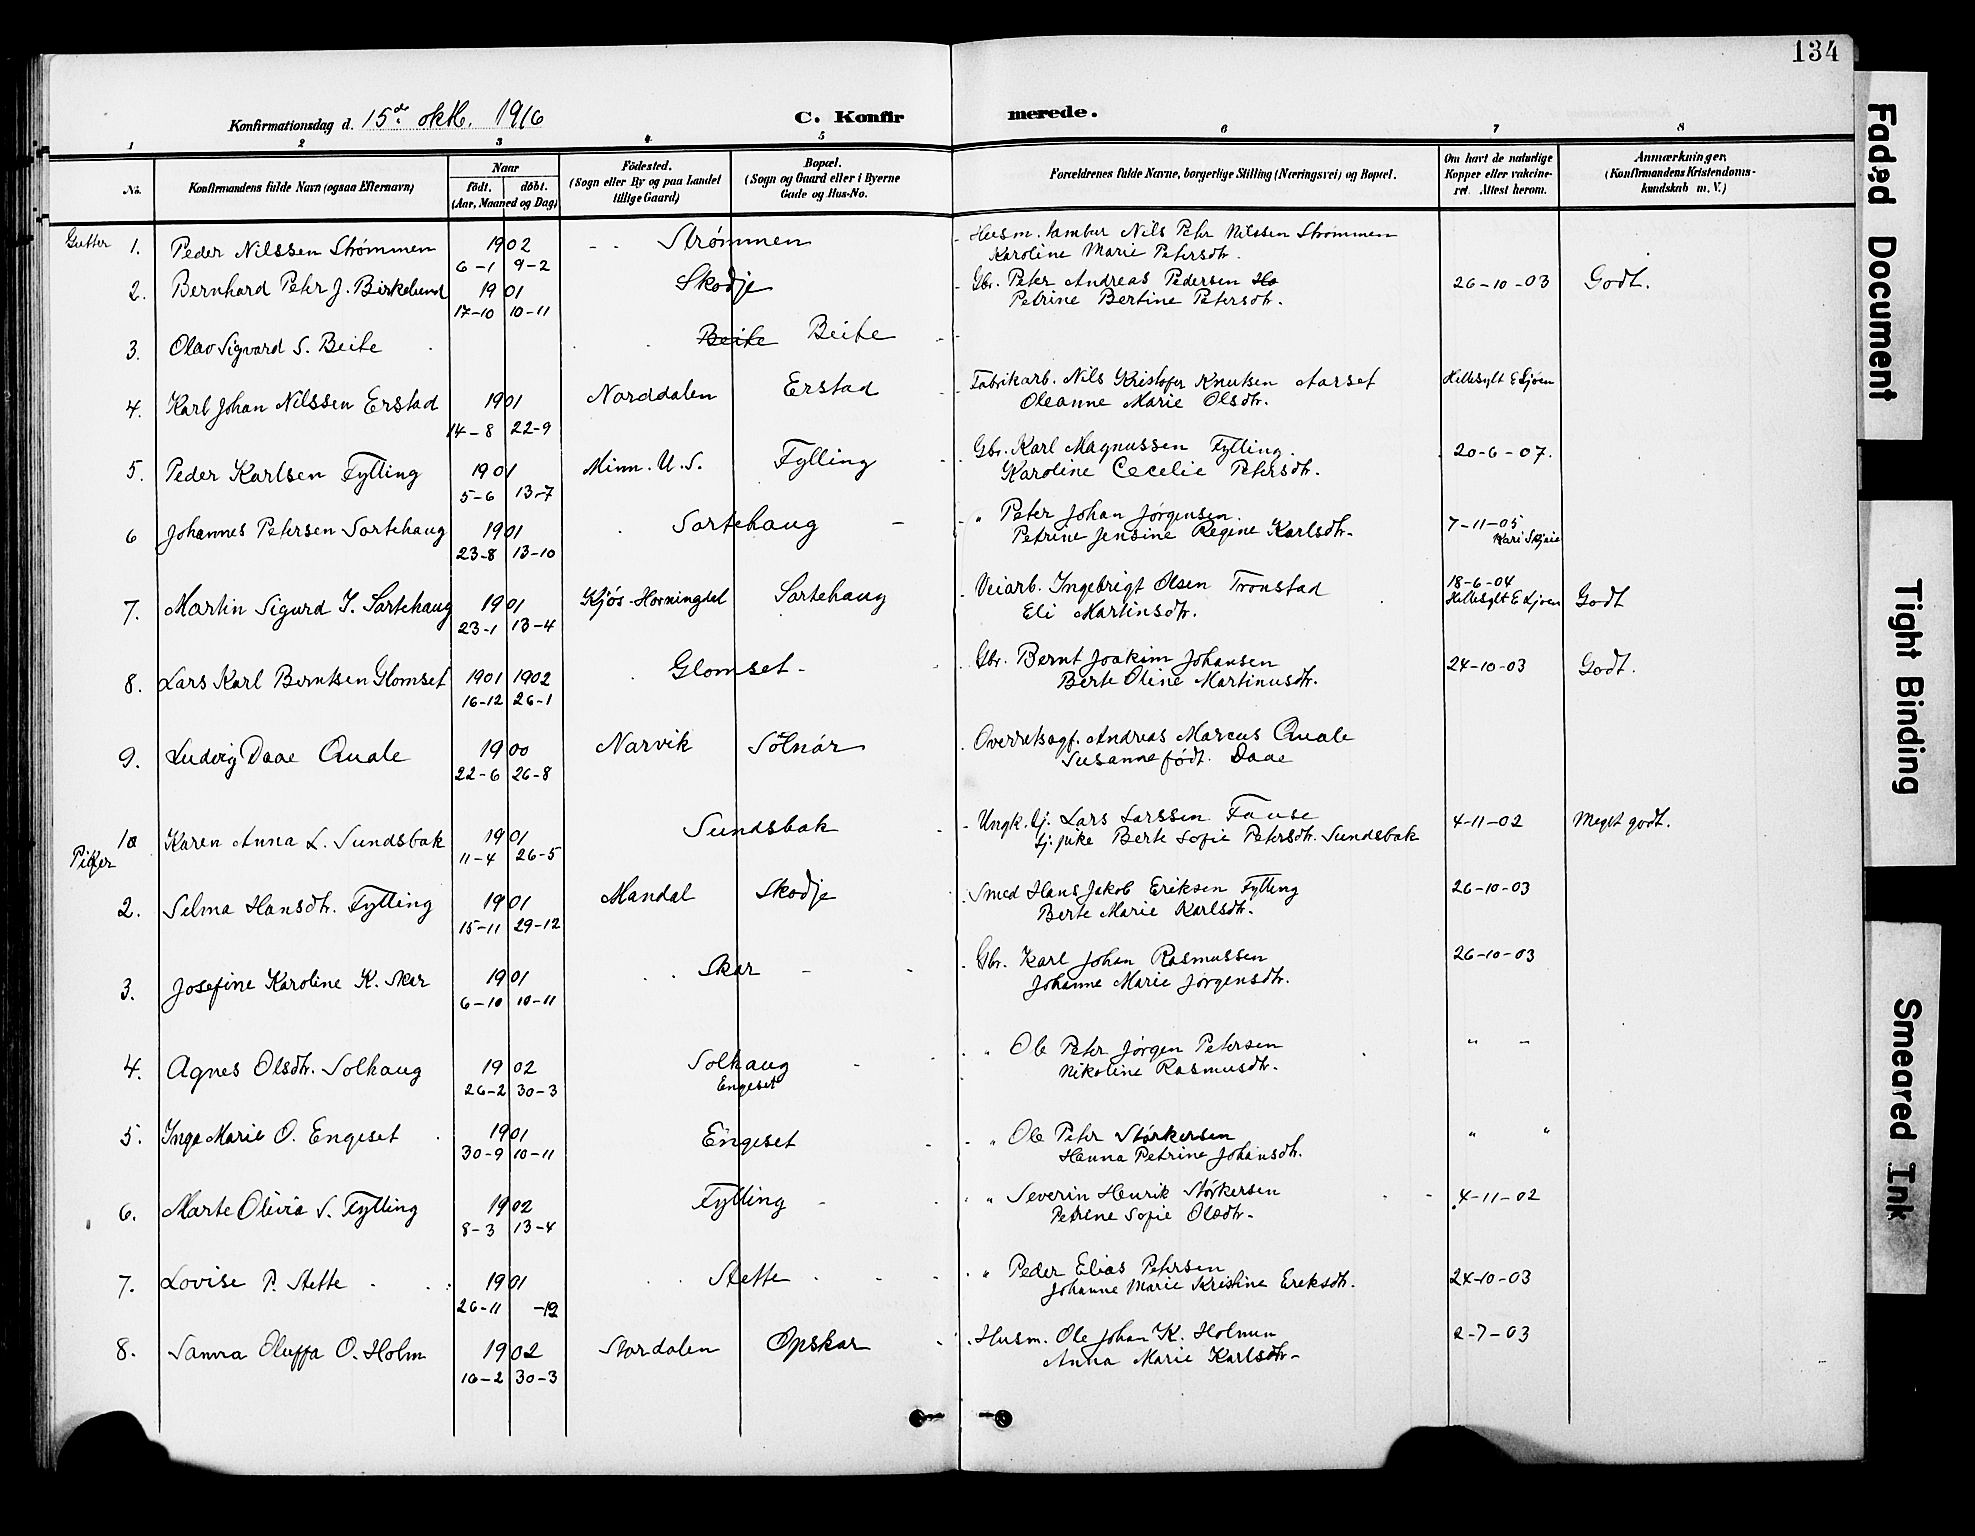 134
Konfirmationsdag d. 15de oktb. 1916
C. Konfirmerede.
1 2 3 4 5 6 7 8
No.
Konfirmandens fulde Navn (ogsaa Efternavn)
Naar
födt. döbt.
(Aar, Maaned og Dag)
Födested.
(Sogn eller By og paa Landet
tillige Gaard)
Bopæl.
(Sogn og Gaard eller i Byerne
Gade og Hus-No.
Forældrenes fulde Navne, borgerlige Stilling (Næringsvei) og Bopæl.
Om havt de naturlige
Kopper eller vakcine-
ret. Attest herom.
Anmærkninger.
(Konfirmandens Kristendoms-
kundskab m. V.)
Gutter 1. Peder Nilssen Strømmen 1902 - - Strømmen Husm. Nils Petr Nilssen Strømmen
6-1 9-2 Karoline Marie Petersdtr.
2. Bernhard Petr J. Birkelund 1901 Skodje Gbr. Peter Andreas Pedersen Ho 26-10-03 Godt.
17-10 10-11 Petrine Bertine Petersdtr.
3. Olav Sigvard S. Beite Beite Beite
4. Karl Johan Nilssen Erstad 1901 Norddalen Erstad Fabrikarb. Nils Kristofer Knutsen Aarset Hellesylt E Ljøen
14-8 22-9 Oleanne Marie Olsdtr.
5. Peder Karlsen Fylling 1901 Minn. U.S. Fylling Gbr. Karl Magnussen Fylling. 20-6-07.
5-6 13-7 Karoline Cecelie Petersdtr.
6 Johannes Petersen Sortehaug 1901 Sortehaug - " Peter Johan Jørgensen. 7-11-05
23-8 13-10 Petrine Jensine Regine Karlsdtr. Kari Skjaie
7. Martin Sigurd I. Sortehaug 1901 Kjøs-Horningdal Sortehaug Veiarb. Ingebrigt Olsen Tronstad 18-6-04
23-1 13-4 Eli Martinsdtr. Hellesylt E Ljøen Godt
8. Lars Karl Berntsen Glomset 1901 1902 Glomset - Gbr. Bernt Joakim Johansen 24-10-03 Godt.
16-12 26-1 Berte Oline Martinusdtr.
9. Ludvig Daae Quale 1900 Narvik Solnør Overretssagf. Andreas Marcus Quale
22-6 26-8 Susanne født. Daae
Piker 1 Karen Anna L. Sundsbak 1901 Sundsbak Ungk. Lars Larssen Fause 4-11-02 Meget godt.
11-4 26-5 pike Berte Sofie Petersdtr. Sundsbak
2. Selma Hansdtr. Fylling 1901 Mandal Skodje Smed Hans Jakob Eriksen Fylling 26-10-03
15-11 29-12 Berte Marie Karlsdtr.
3. Josefine Karoline K. Skar 1901 Skar - Gbr. Karl Johan Rasmussen 26-10-03
6-10 10-11 Johanne Marie Jørgensdtr.
4. Agnes Olsdtr. Solhaug 1902 Solhaug " Ole Peter Jørgen Petersen " "
26-2 30-3 Engeset Nikoline Rasmusdtr.
5. Inga Marie O. Engeset 1901 Engeset " Ole Peter Størkersen " "
30-9 10-11 Hanna Petrine Johansdtr.
6. Marte Olivia S. Fylling 1902 Fylling - " Severin Henrik Størkersen 4-11-02
8-3 13-4 Petrine Sofie Olsdtr.
7. Lovise P. Stette 1901 Stette " Peder Elias Petersen 24-10-03
26-11 -12 Johanne Marie Kristine Ereksdtr.
8. Sanna Oluffa O. Holm 1902 Stordalen Opskar Husm. Ole Johan K. Holmen 2-7-03
16-2 30-3 Anna Marie Karlsdtr
Faded Document
Tight Binding
Smeared Ink